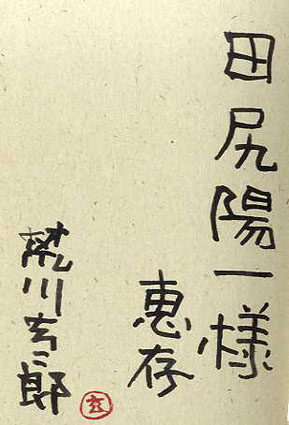 田尻陽一様
惠存
川玄二郎
玄